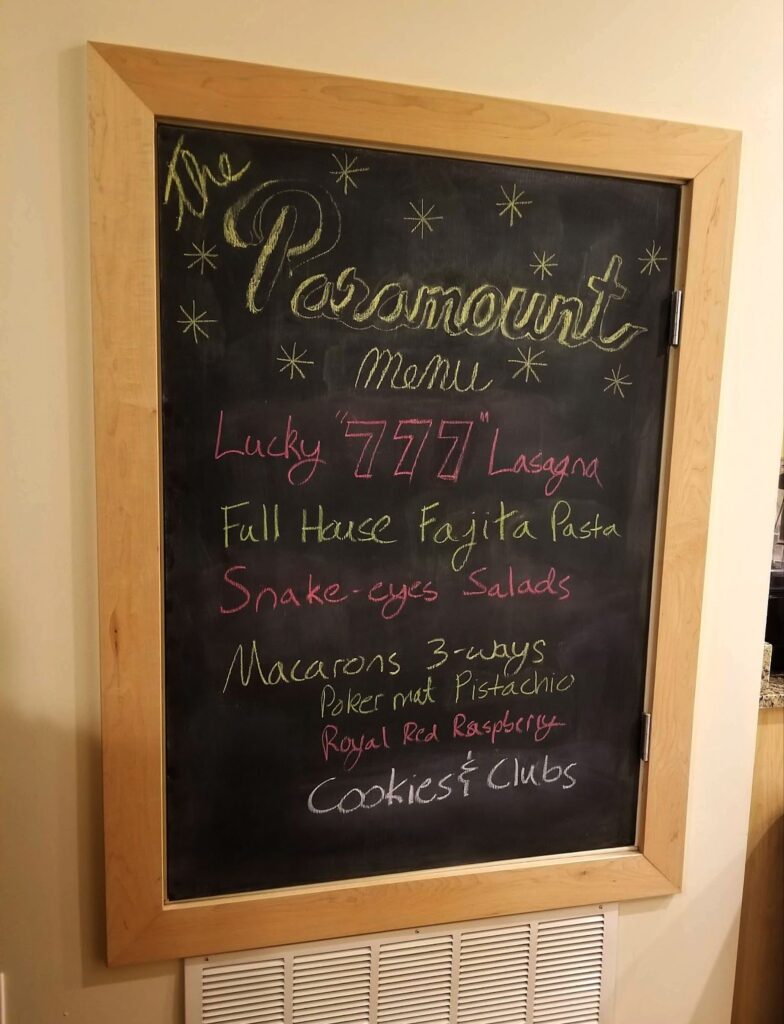 The
Paramount
menu
Lucky "777" Lasagna
Full House Fajita Pasta
Snake-eyes Salads
Macarons 3-ways
Poker mat Pistachio
Royal Red Raspberry
Cookies & Clubs